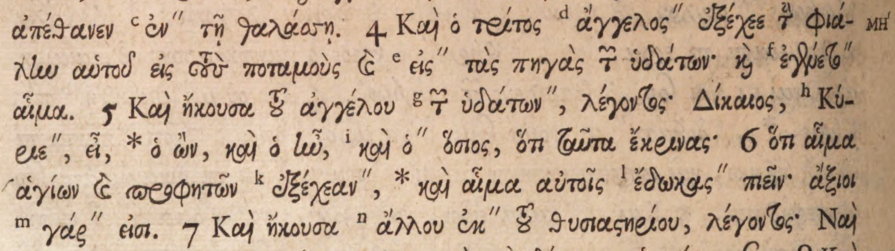 ἀπέθανεν ᶜ ἐν" τῇ θαλάσσῃ. 4 Καὶ ὁ τρίτος ᵈ ἄγγελος" ἐξέχεε τὴν φιά- ΜΗ
λην αὐτοῦ εἰς τοὺς ποταμοὺς καὶ ᵉ εἰς" τὰς πηγὰς τῶν ὑδάτων· καὶ ᶠ ἐγένετο"
αἷμα. 5 Καὶ ἤκουσα τοῦ ἀγγέλου ᵍ τῶν ὑδάτων", λέγοντος· Δίκαιος, ʰ Κύ-
ριε", εἶ, * ὁ ὢν, καὶ ὁ ἦν, ⁱ καὶ ὁ" ὅσιος, ὅτι ταῦτα ἔκρινας· 6 ὅτι αἷμα
ἁγίων καὶ προφητῶν ᵏ ἐξέχεαν", * καὶ αἷμα αὐτοῖς ˡ ἔδωκας" πιεῖν· ἄξιοι
ᵐ γάρ" εἰσι. 7 Καὶ ἤκουσα ⁿ ἄλλου ἐκ" τοῦ θυσιαστηρίου, λέγοντος· Ναὶ